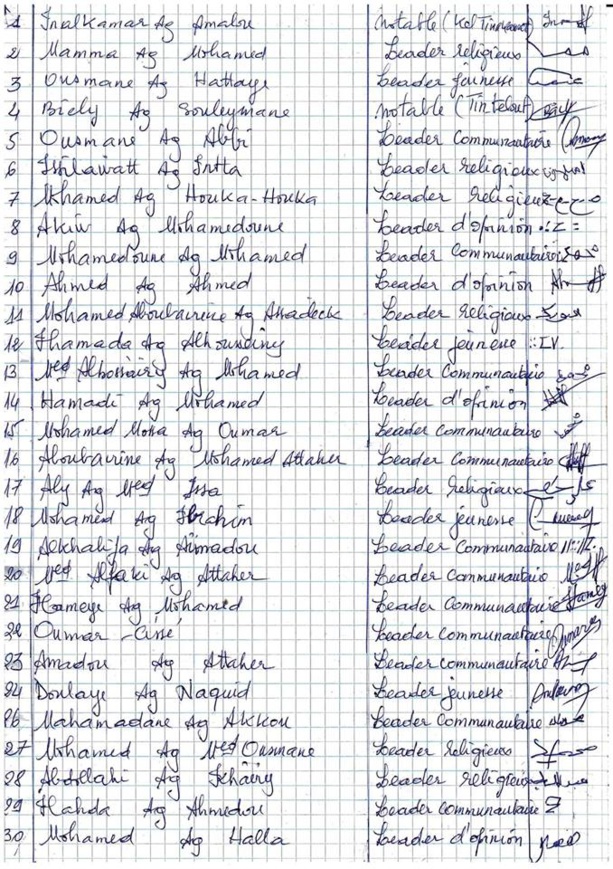 1 Inalkamar Ag Amalou notable (Kel Tinekaouat)
2 Mamma Ag Mohamed Leader religieux
3 Ousmane Ag Hattaye Leader jeunesse
4 Biely Ag Souleymane notable (Tintelout)
5 Ousmane Ag Abibi Leader Communautaire
6 Ag Intta Leader religieux
7 Mohamed Ag Houka-Houka Leader religieux
8 Akiw Ag Mohamedoune Leader d'opinion
9 Mohamedoune Ag Mohamed Leader Communautaire
10 Ahmed Ag Ahmed Leader d'opinion
11 Mohamed Aboubacrine Ag Assadeck Leader religieux
12 Ag Leader jeunesse
13 Med Ag Mohamed Leader Communautaire
14 Hamadi Ag Mohamed Leader d'opinion
15 Mohamed Mossa Ag Oumar Leader Communautaire
16 Aboubacrine Ag Mohamed Attaher Leader Communautaire
17 Aly Ag Med Issa Leader religieux
18 Mohamed Ag Ibrahim Leader jeunesse
19 Alkhalifa Ag Aïmadou Leader Communautaire
20 Med Alfaki Ag Attaher Leader Communautaire
21 Hameye Ag Mohamed Leader Communautaire
22 Oumar Cissé Leader Communautaire
23 Amadou Ag Attaher Leader Communautaire
24 Doulaye Ag Naquid Leader jeunesse
26 Mahamadane Ag Akkou Leader Communautaire
27 Mohamed Ag Med Ousmane Leader religieux
28 Abdollahi Ag Leader religieux
29 Ag Ahmedou Leader Communautaire
30 Mohamed Ag Halla Leader d'opinion